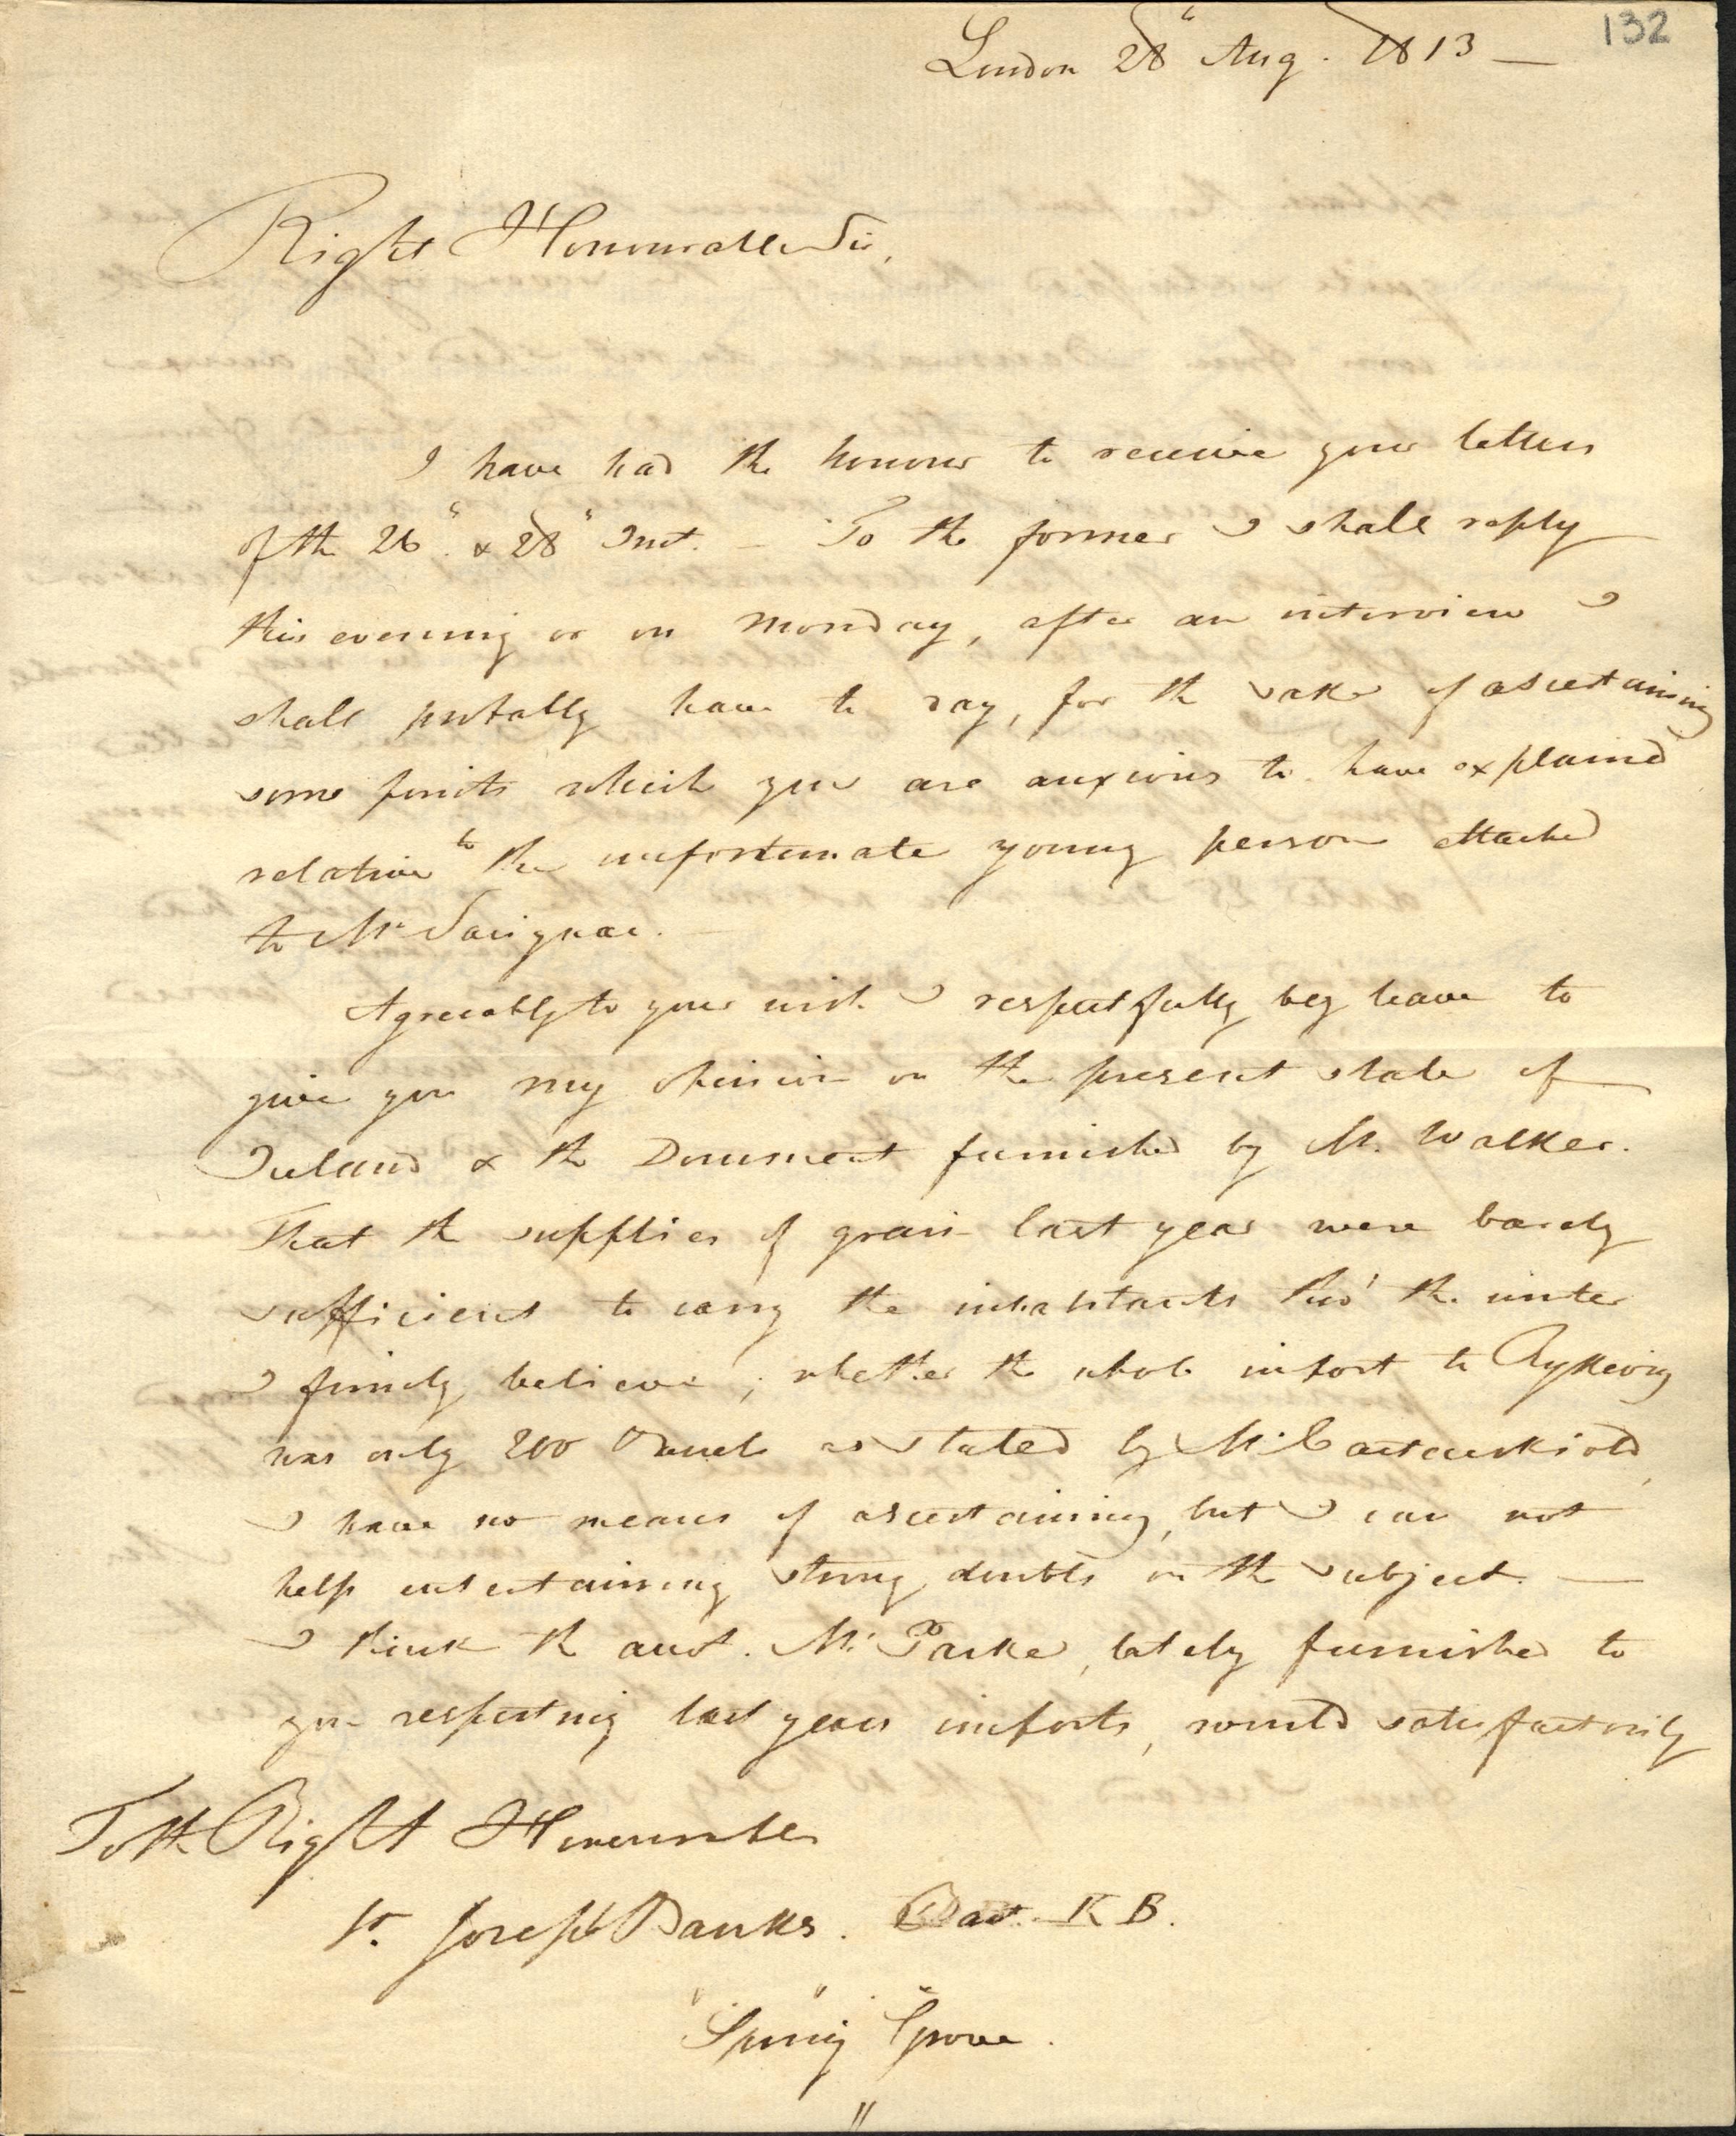 132
London 28" Aug. 1813 —
Right Honourable Sir,
I have had the honour to receive your letters
of the 26" & 28" Inst. — To the former I shall reply
this evening or on Monday, after an interview I
shall probably have to day, for the sake of ascertaining
some points which you are anxious to have explained
relative to the unfortunate young person attached
to Mr Savignac. —
Agreeably to your wish I respectfully beg leave to
give you my opinion on the present state of
Iceland & the Document furnished by Mr. Walker.
That the supplies of grain last year were barely
sufficient to carry the inhabitants thro' the winter
I firmly believe; whether the whole import to Rykevig
was only 200 Barrels as stated by Mr. Castenskiold,
I have no means of ascertaining, but I can not
help entertaining strong doubts on the subject. —
I think the acct. Mr. Parke, lately furnished to
you respecting last years imports, would satisfactorily
To the Right Honourable
Sr. Joseph Banks. Bart. K B.
"Spring" "Grove.
"